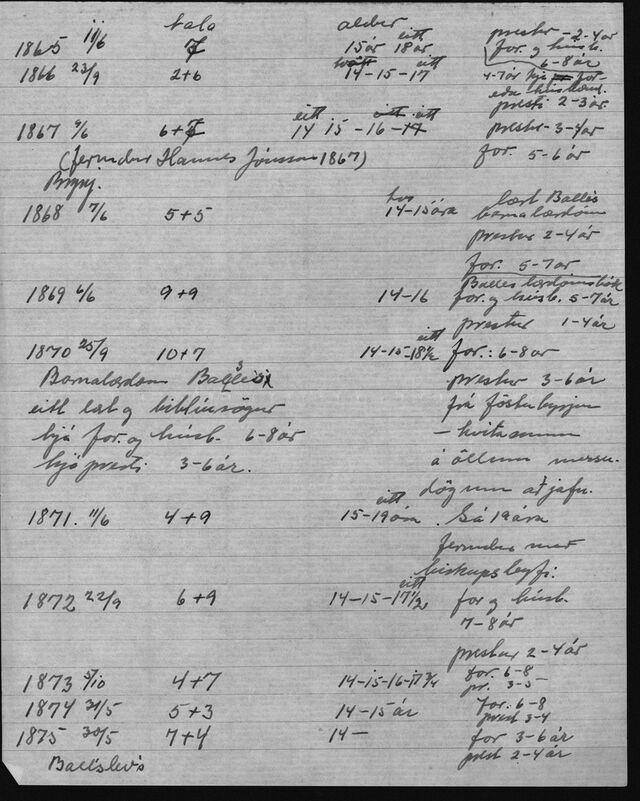 tala aldur
1865 11/6 7 15 ár eitt 18 ár prestur - 2-4 ár
for. og húsb. 6-8 ár
1866 23/9 2+6 14-15-17 eitt 4-7 ár hjá for-
eða húsbænd.
presti 2-3 ár.
1867 9/6 6+7 eitt 14 15 -16 -17 prestur 3-4 ár
(fermdur Hannes Jónsson 1867) for. 5-6 ár
1868 7/6 5+5 14-15 ára lært Balles
barnalærdóm
prestur 2-4 ár
for. 5-7 ár
1869 6/6 9+9 14-16 Balles lærdómsbók
for. og húsb. 5-7 ár
prestur 1-4 ár
1870 25/9 10+7 14-15-18 1/2 eitt for.: 6-8 ár
Barnalærdóm Balles prestur 3-6 ár
eitt lært og biblíusögur frá föstubyrjun
hjá for. og húsb. 6-8 ár - hvítasunnu
hjá presti 3-6 ár. á öllum messu-
dögum at jafn.
1871. 11/6 4+9 15-19 ára eitt Sá 19 ára
fermdur með
biskupsleyfi.
1872 22/9 6+9 14-15-17 1/2 eitt for og húsb.
7-8 ár
prestur 2-4 ár
1873 5/10 4+7 14-15-16-17 3/4 for. 6-8
pr. 3-5
1874 5+3 14-15 ár for. 6-8
prest 3-4
1875 7+4 14- for 3-6 ár
Balslevs prest 2-4 ár